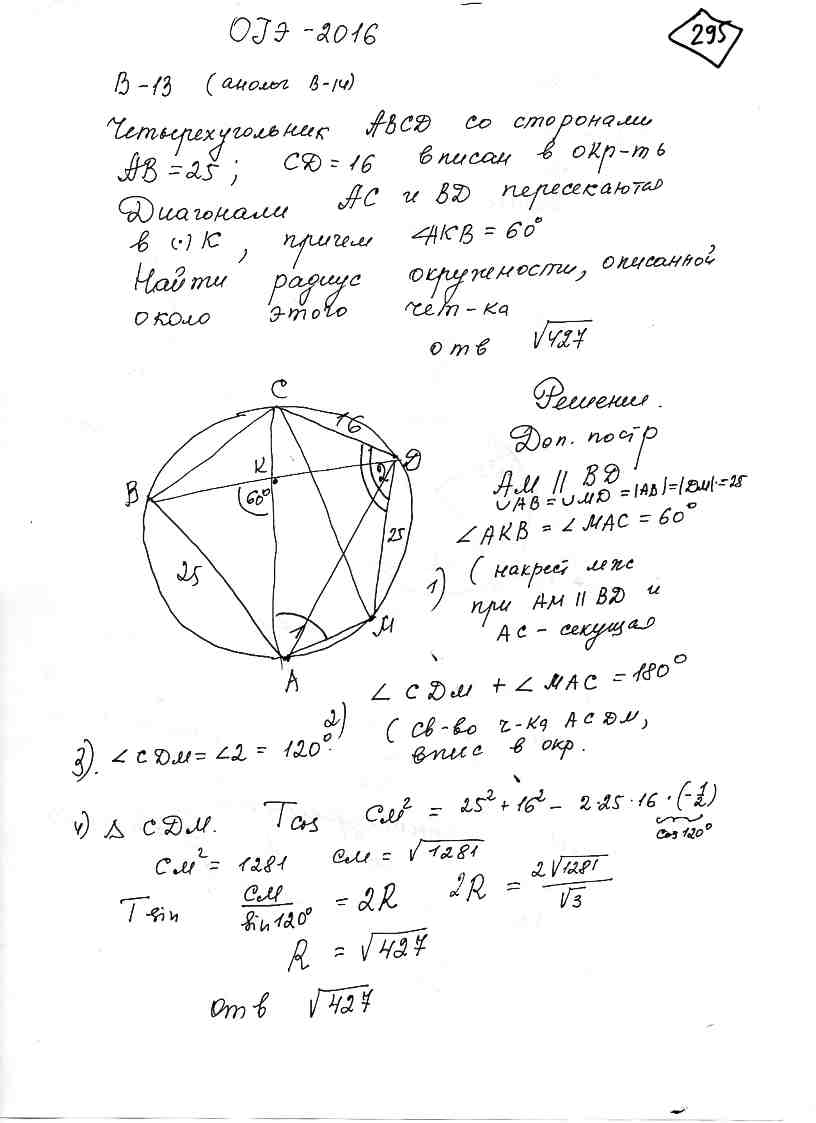 ОГЭ -2016
295
В-13 (аналог В-14)
Четырехугольник ABCD со сторонами
AB = 25; CD = 16 вписан в окр-ть
Диагонали AC и BD пересекаются
в (·) K, причем ∠AKB = 60°
Найти радиус окружности, описанной
около этого чет-ка
отв √427
C
16
Решение.
Доп. постр
K
D
2
AM || BD
B
60°
∪AB = ∪MD = |AB|=|DM|=25
∠AKB = ∠MAC = 60°
25
25
1) (накрест леж
при AM || BD и
1
M
AC - секущая
A
2) ∠CDM + ∠MAC = 180°
(св-во ч-ка ACDM,
впис в окр.
3). ∠CDM = ∠2 = 120°.
4) Δ CDM. Tcos CM² = 25² + 16² - 2·25·16·(-1/2)
cos 120°
CM² = 1281 CM = √1281
T sin CM/sin120° = 2R 2R = 2√1281/√3
R = √427
Отв √427